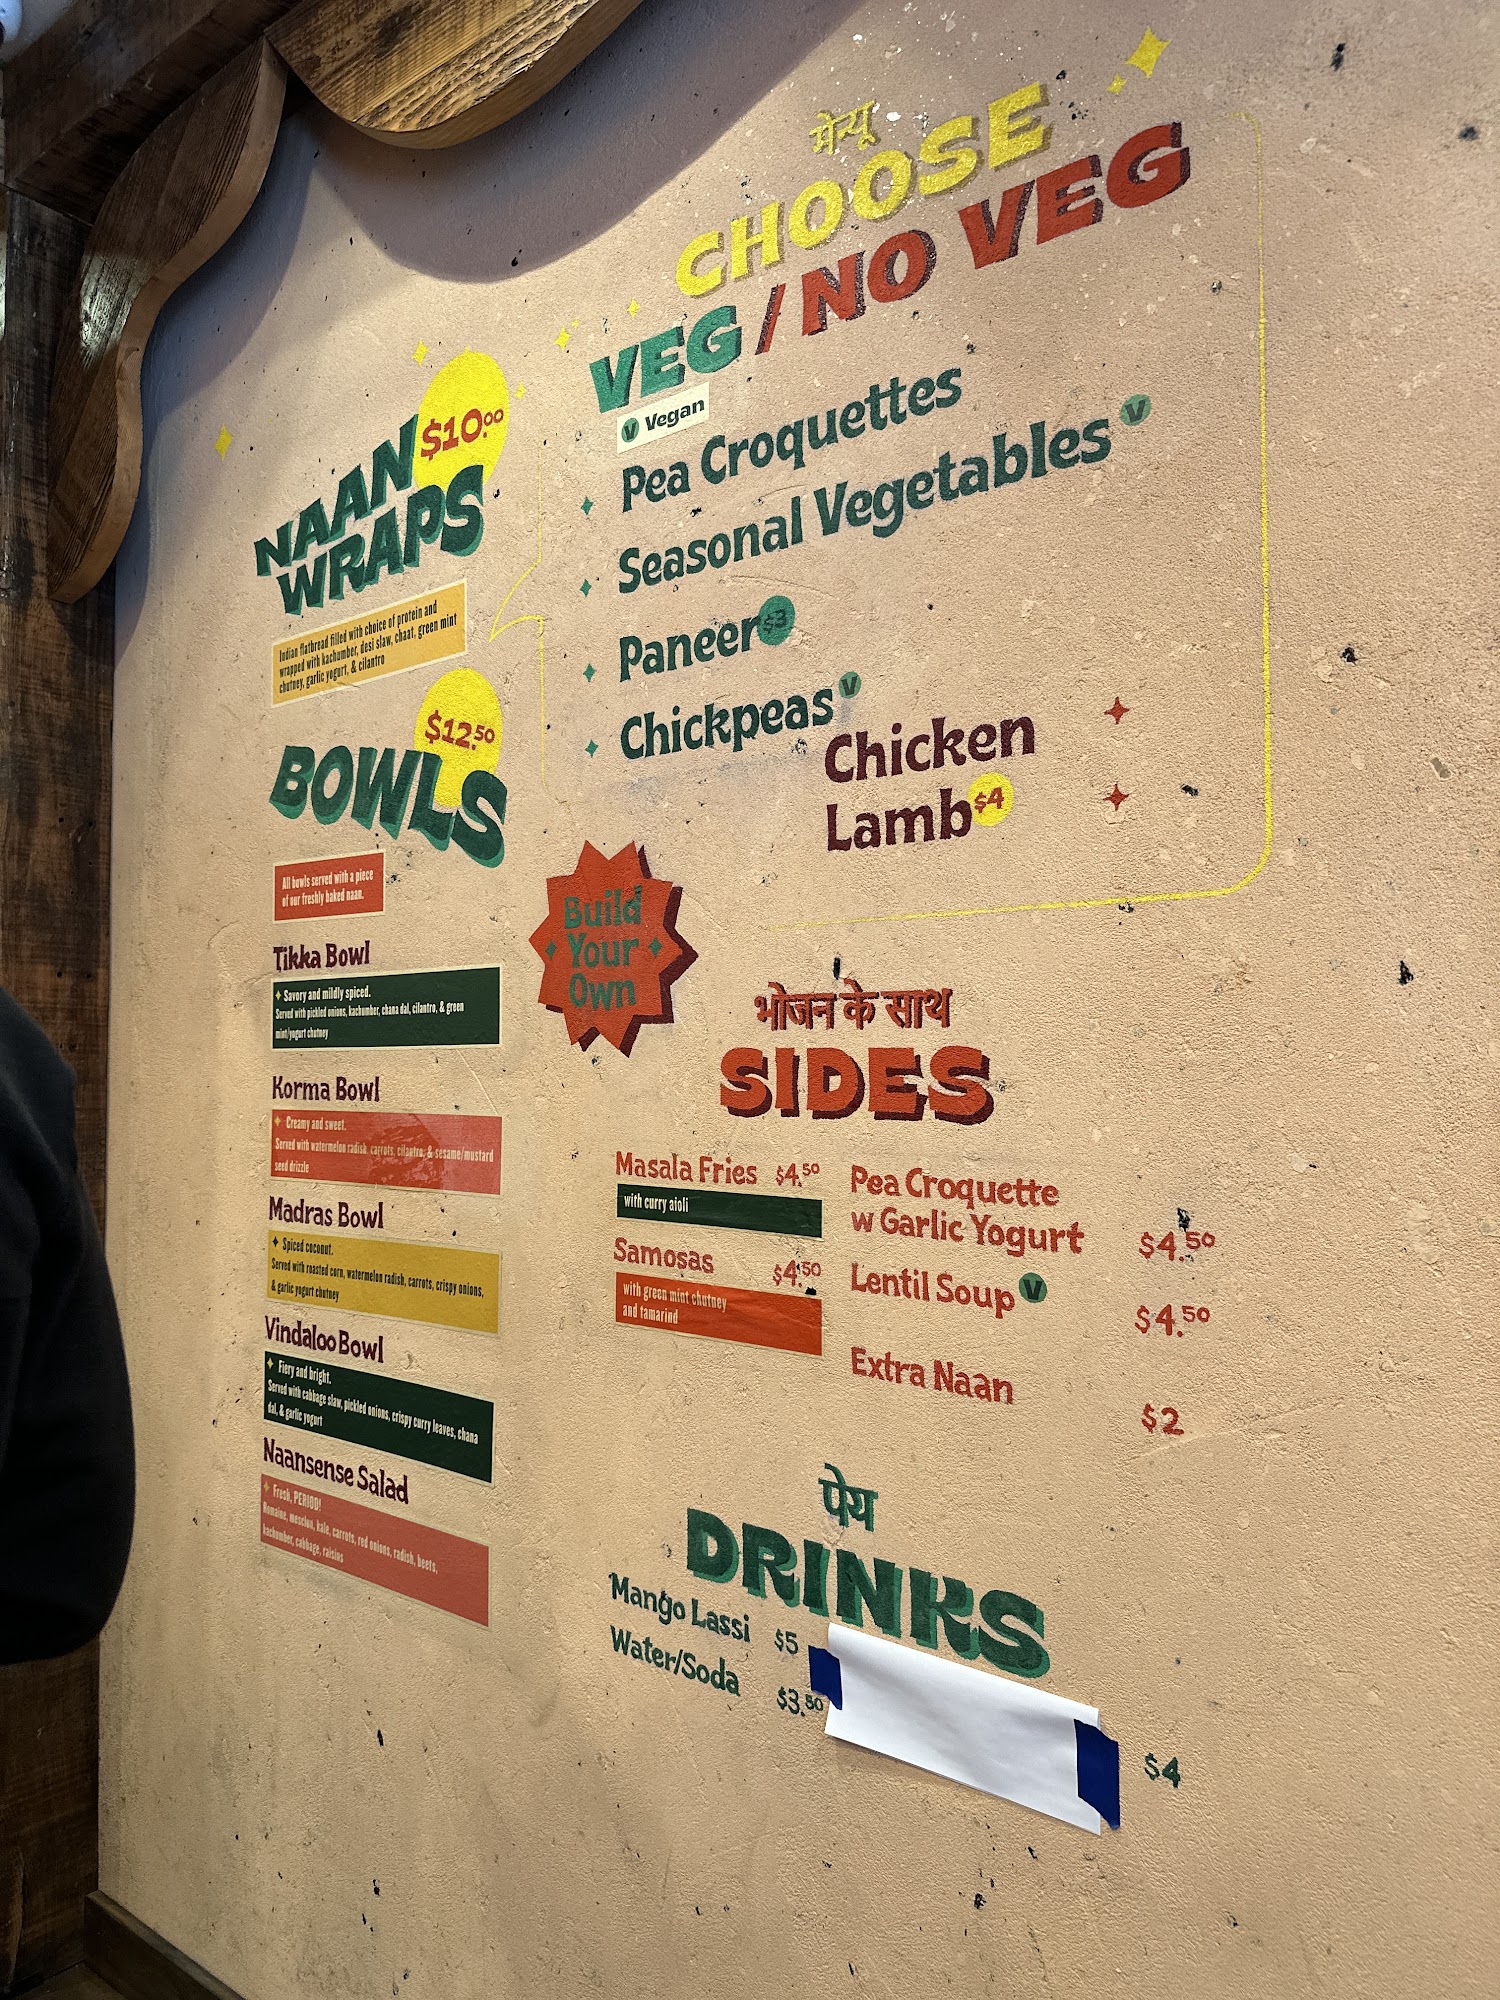 मेन्यू
CHOOSE
VEG / NO VEG
V Vegan
Pea Croquettes
Seasonal Vegetables V
Paneer $3
Chickpeas V
Chicken
Lamb $4
NAAN $10.00
WRAPS
Indian flatbread filled with choice of protein and
wrapped with kachumber, desi slaw, chaat, green mint
chutney, garlic yogurt, & cilantro
$12.50
BOWLS
All bowls served with a piece
of our freshly baked naan.
Tikka Bowl
Savory and mildly spiced.
Served with pickled onions, kachumber, chana dal, cilantro, & green
mint/yogurt chutney
Korma Bowl
Creamy and sweet.
Served with watermelon radish, carrots, cilantro, & sesame/mustard
seed drizzle
Madras Bowl
Spiced coconut.
Served with roasted corn, watermelon radish, carrots, crispy onions,
& garlic yogurt chutney
Vindaloo Bowl
Fiery and bright.
Served with cabbage slaw, pickled onions, crispy curry leaves, chana
dal, & garlic yogurt
Naansense Salad
Fresh, PERIOD!
Romaine, mesclun, kale, carrots, red onions, radish, beets,
kachumber, cabbage, raisins
Build
Your
Own
भोजन के साथ
SIDES
Masala Fries $4.50
with curry aioli
Samosas $4.50
with green mint chutney
and tamarind
Pea Croquette
w Garlic Yogurt $4.50
Lentil Soup V $4.50
Extra Naan $2
पेय
DRINKS
Mango Lassi $5
Water/Soda $3.50
$4